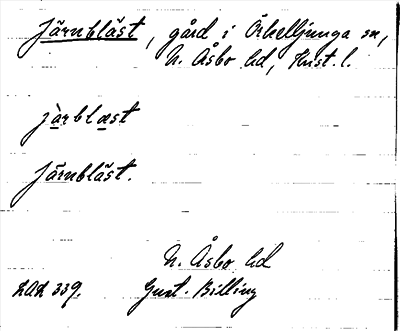 Järnbläst, gård i Örkelljunga sn,
N. Åsbo hd, Krist. l.
jàrblæst
Järnbläst.
N. Åsbo hd
LAL 339. Gust. Billing